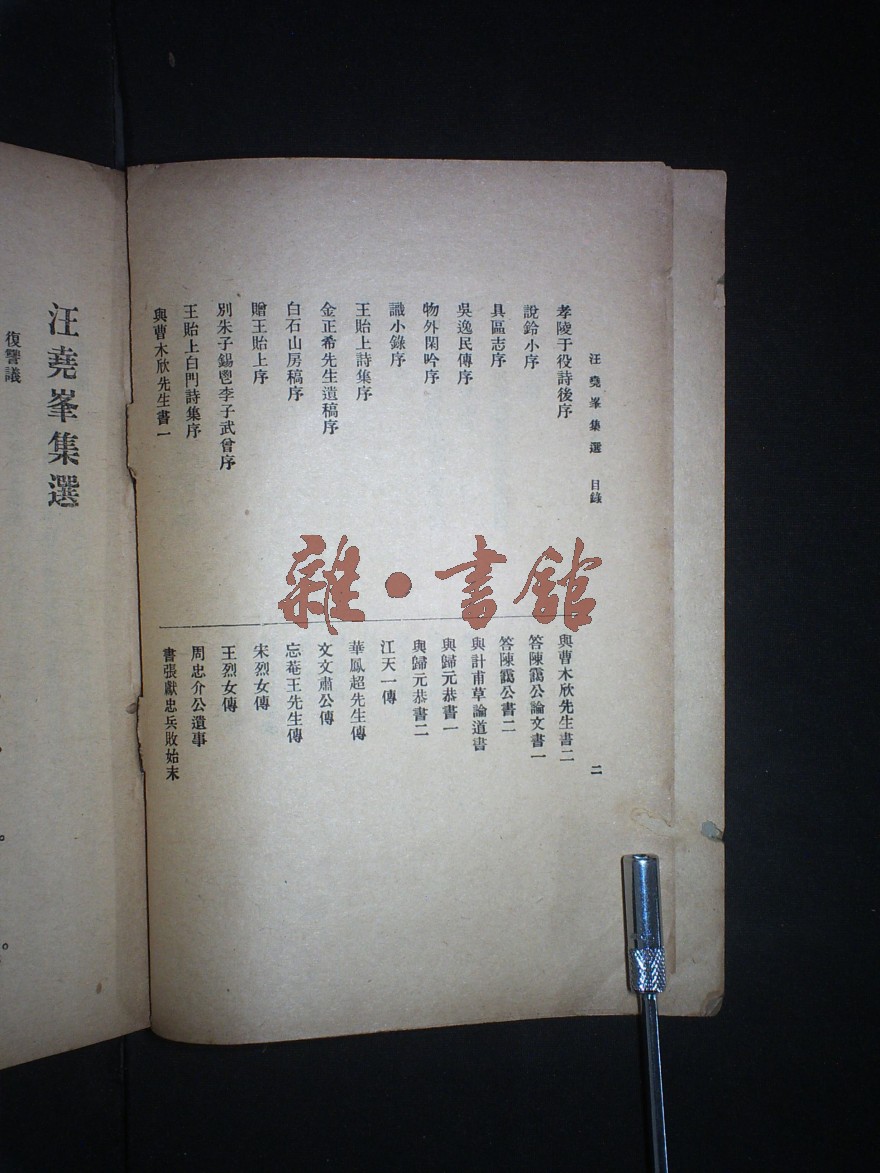 汪堯峯集選 目錄 二
孝陵于役詩後序
說鈴小序
具區志序
吳逸民傳序
物外閑吟序
識小錄序
王貽上詩集序
金正希先生遺稿序
白石山房稿序
贈王貽上序
別朱子錫鬯李子武曾序
王貽上白門詩集序
與曹木欣先生書一
與曹木欣先生書二
答陳靄公論文書一
答陳靄公書二
與計甫草論道書
與歸元恭書一
與歸元恭書二
江天一傳
華鳳超先生傳
文文肅公傳
忘菴王先生傳
宋烈女傳
王烈女傳
周忠介公遺事
書張獻忠兵敗始末
汪堯峯集選
復讐議
雜·書館